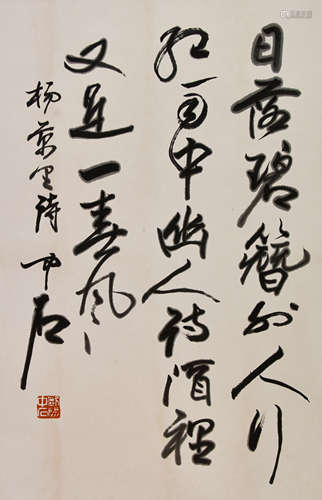 日落碧簪外人行
红雨中幽人诗酒裡
又是一春风
杨万里诗 中石